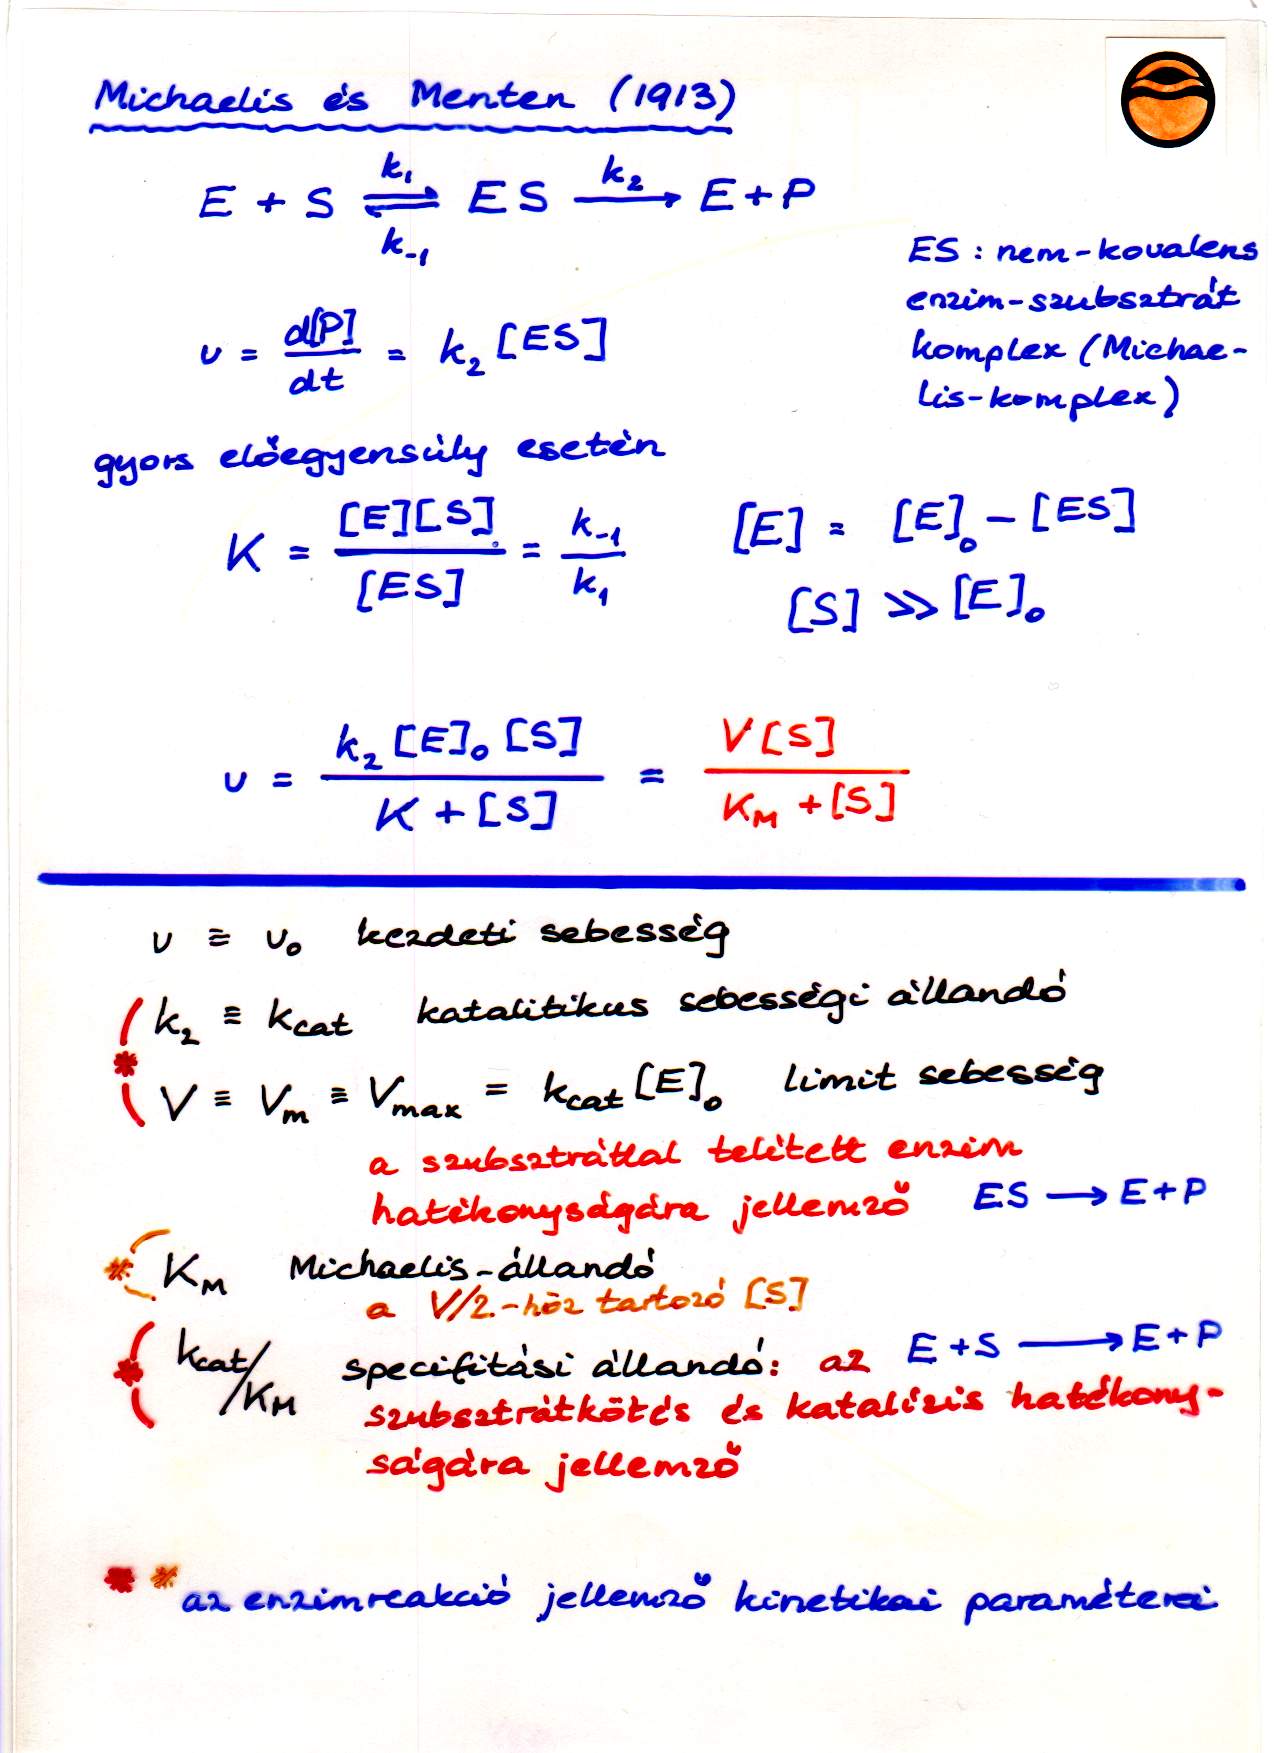 Michaelis és Menten (1913)
E + S ⇌ ES ⟶ E + P
k₁ k₋₁ k₂
ES : nem-kovalens
enzim-szubsztrát
komplex (Michae-
lis-komplex)
v = d[P]/dt = k₂ [ES]
gyors előegyensúly esetén
K = [E][S]/[ES] = k₋₁/k₁
[E] = [E]₀ - [ES]
[S] ≫ [E]₀
v = k₂ [E]₀ [S] / K + [S] = V [S] / K_M + [S]
v ≡ v₀ kezdeti sebesség
k₂ ≡ k_cat katalitikus sebességi állandó
*
V ≡ V_m ≡ V_max = k_cat [E]₀ limit sebesség
a szubsztráttal telített enzim
hatékonyságára jellemző ES ⟶ E + P
* K_M Michaelis-állandó
a V/2-höz tartozó [S]
* k_cat/K_M specifitási állandó: az E + S ⟶ E + P
szubsztrátkötés és katalízis hatékony-
ságára jellemző
* * az enzimreakció jellemző kinetikai paraméterei